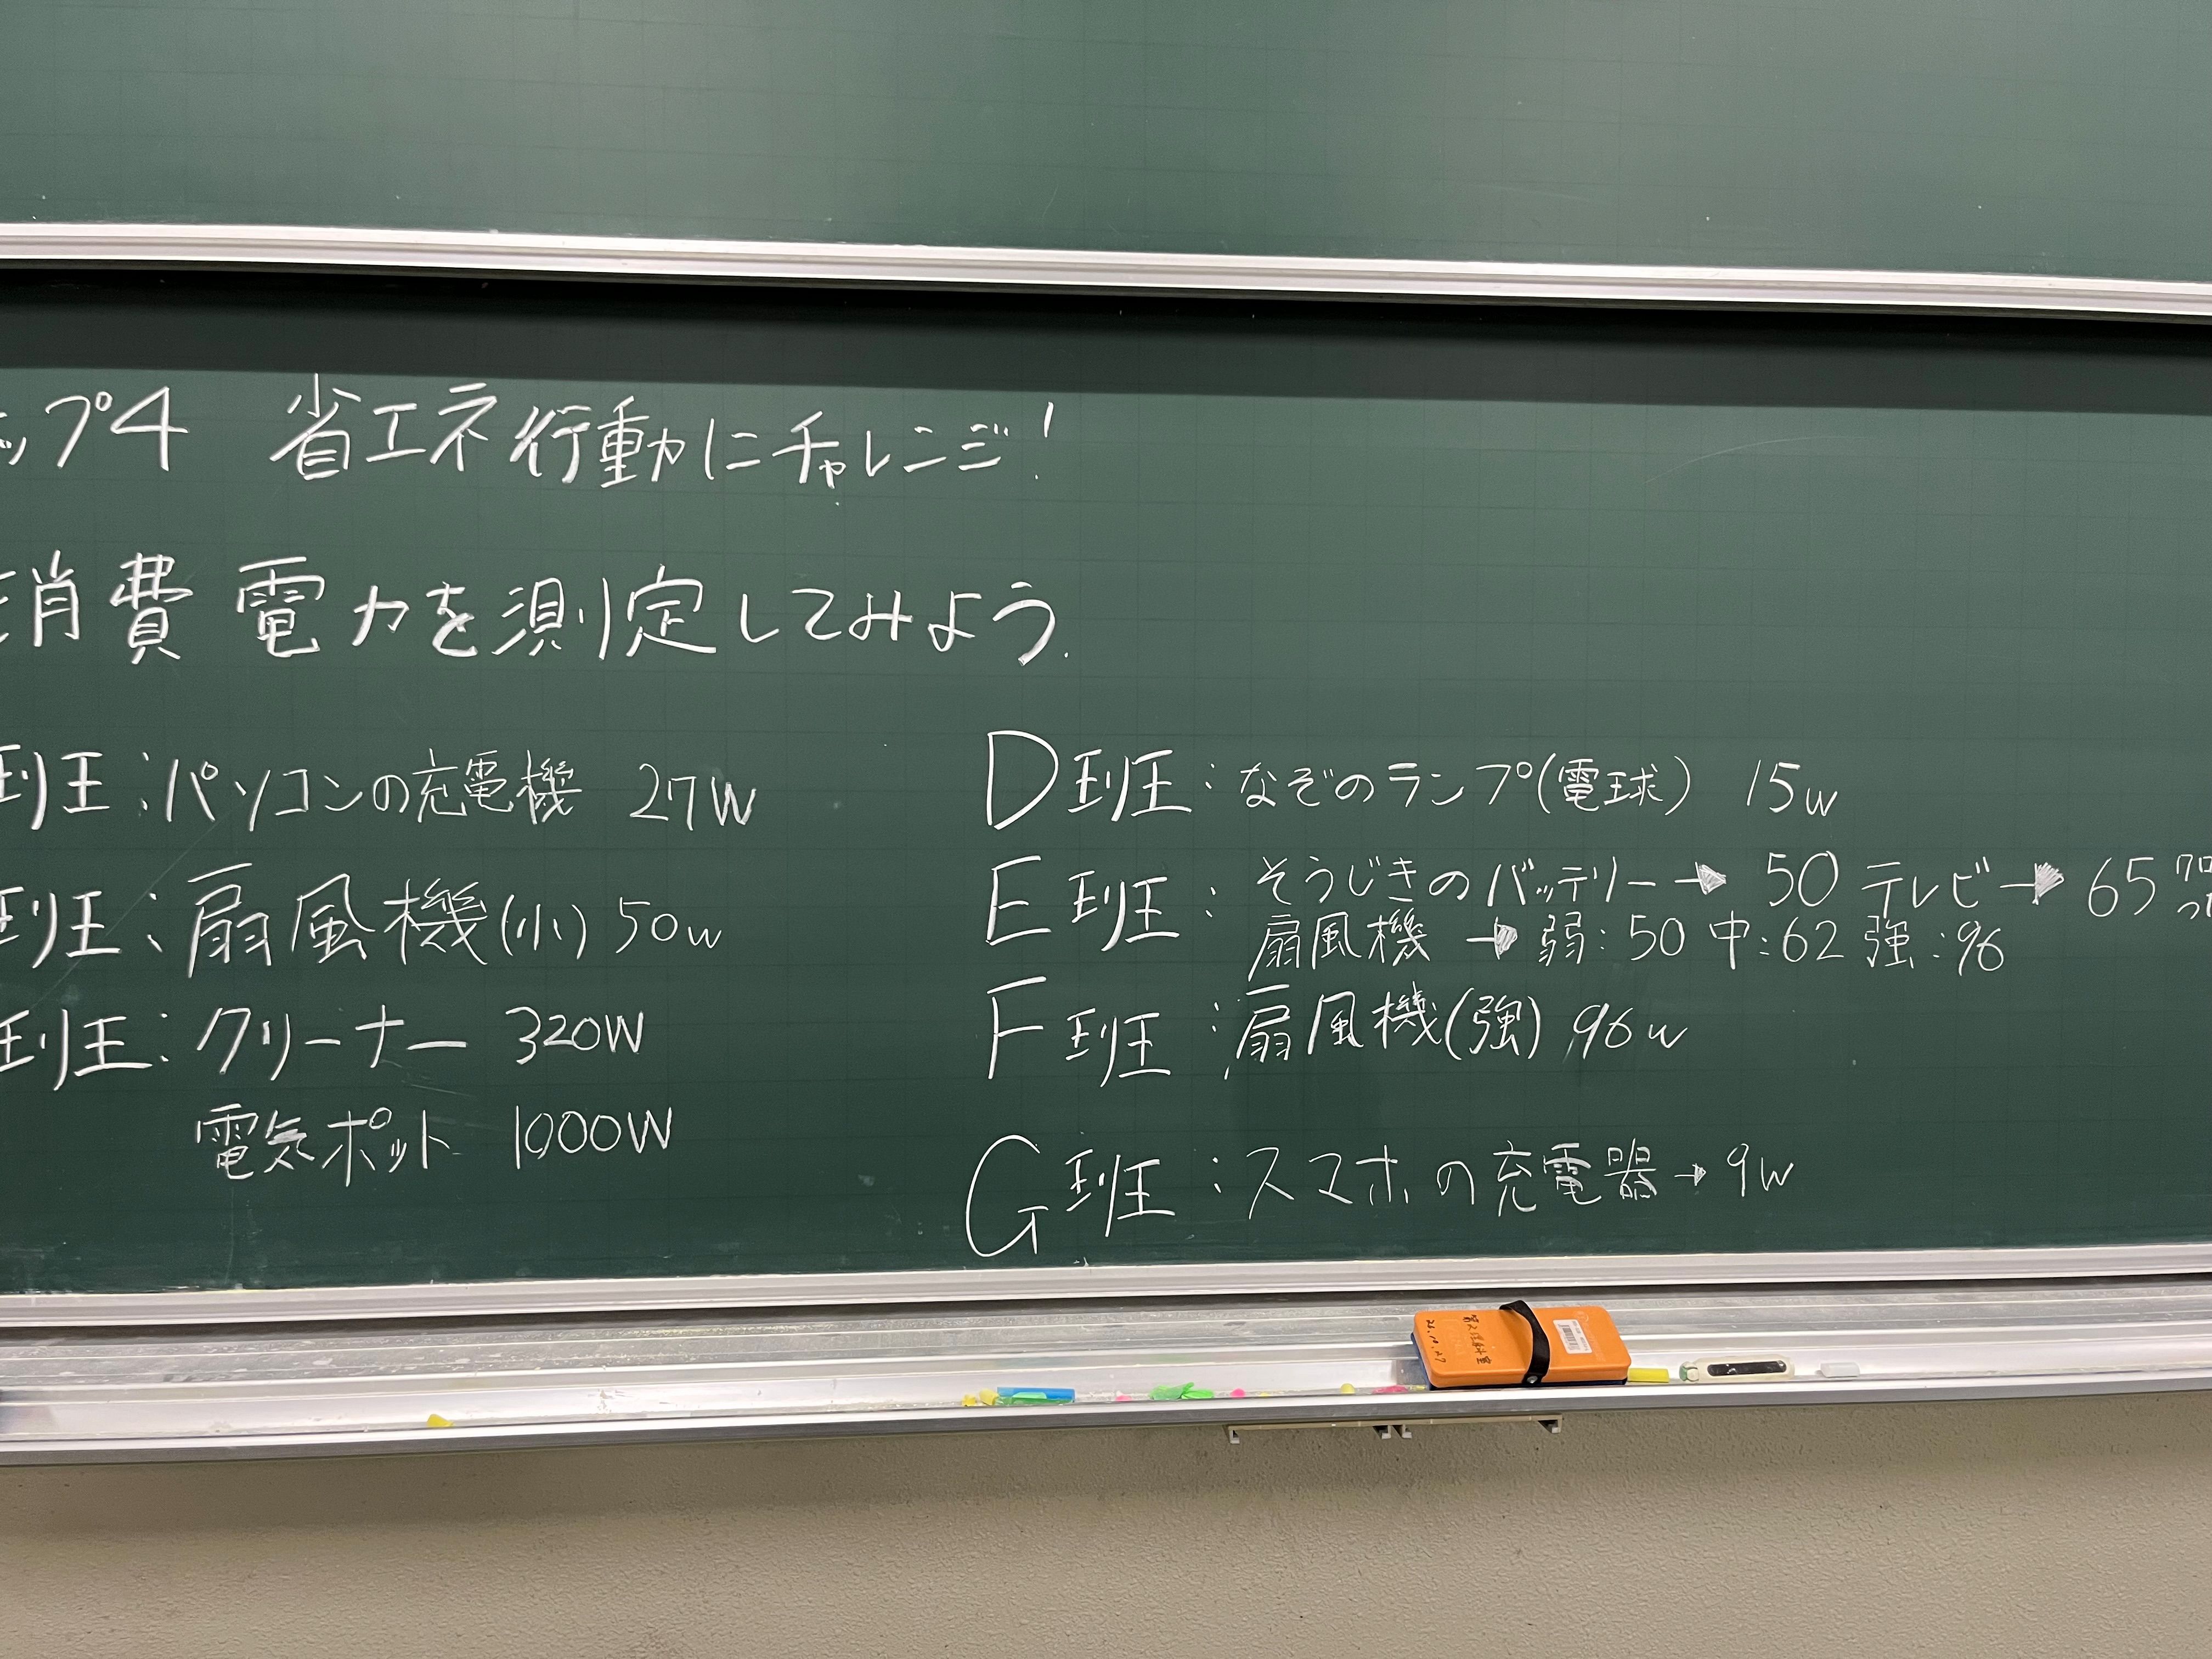 ップ4 省エネ行動にチャレンジ!
消費電力を測定してみよう.
班:パソコンの充電機 27W
班:扇風機(小) 50w
班:クリーナー 320W
電気ポット 1000W
D班:なぞのランプ(電球) 15w
E班:そうじきのバッテリー→50 テレビ→65
扇風機→弱:50 中:62 強:96
F班:扇風機(強) 96w
G班:スマホの充電器→9w